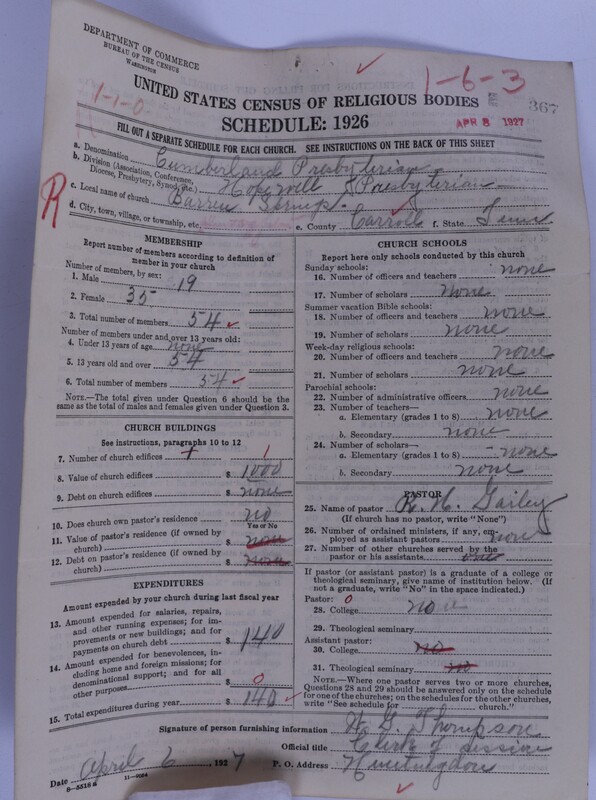 DEPARTMENT OF COMMERCE
BUREAU OF THE CENSUS
WASHINGTON
1-6-3
1-1-0
UNITED STATES CENSUS OF RELIGIOUS BODIES
E 367
SCHEDULE: 1926
APR 8 1927
FILL OUT A SEPARATE SCHEDULE FOR EACH CHURCH. SEE INSTRUCTIONS ON THE BACK OF THIS SHEET
a. Denomination Cumberland Presbyterian
b. Division (Association, Conference, Diocese, Presbytery, Synod, etc.) Hopewell Presbyterian
R
c. Local name of church Barren Springs.
d. City, town, village, or township, etc. e. County Carroll f. State Tenn
MEMBERSHIP
Report number of members according to definition of member in your church
Number of members, by sex:
1. Male 19
2. Female 35
3. Total number of members 54
Number of members under and over 13 years old:
4. Under 13 years of age none
5. 13 years old and over 54
6. Total number of members 54
NOTE.—The total given under Question 6 should be the same as the total of males and females given under Question 3.
CHURCH BUILDINGS
See instructions, paragraphs 10 to 12
7. Number of church edifices 1
8. Value of church edifices $ 1000
9. Debt on church edifices $ none
10. Does church own pastor's residence no
Yes or No
11. Value of pastor's residence (if owned by church) $ none
12. Debt on pastor's residence (if owned by church) $ none
EXPENDITURES
Amount expended by your church during last fiscal year
13. Amount expended for salaries, repairs, and other running expenses; for improvements or new buildings; and for payments on church debt $ 140
14. Amount expended for benevolences, including home and foreign missions; for denominational support; and for all other purposes $ 0
15. Total expenditures during year $ 140
CHURCH SCHOOLS
Report here only schools conducted by this church
Sunday schools:
16. Number of officers and teachers none
17. Number of scholars none
Summer vacation Bible schools:
18. Number of officers and teachers none
19. Number of scholars none
Week-day religious schools:
20. Number of officers and teachers none
21. Number of scholars none
Parochial schools:
22. Number of administrative officers none
23. Number of teachers—
a. Elementary (grades 1 to 8) none
b. Secondary none
24. Number of scholars—
a. Elementary (grades 1 to 8) none
b. Secondary none
PASTOR
25. Name of pastor R. H. Gailey
(If church has no pastor, write "None")
26. Number of ordained ministers, if any, employed as assistant pastors none
27. Number of other churches served by the pastor or his assistants one
If pastor (or assistant pastor) is a graduate of a college or theological seminary, give name of institution below. (If not a graduate, write "No" in the space indicated.)
Pastor: 0
28. College no
29. Theological seminary
Assistant pastor:
30. College no
31. Theological seminary no
NOTE.—Where one pastor serves two or more churches, Questions 28 and 29 should be answered only on the schedule for one of the churches; on the schedules for the other churches, write "See schedule for church."
Signature of person furnishing information Thompson
Official title Clerk of session
Date April 6, 1927 P. O. Address Huntingdon
8-5518a 11-9024